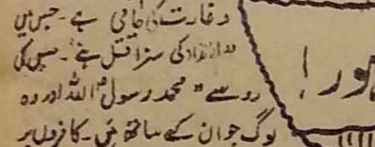 و غارت کی حامی ہے۔ جس میں
"ارتداد کی سزا قتل ہے"۔ جس کی
رو سے "محمد رسول اللہ اور وہ
لوگ جو ان کے ساتھ ہیں۔ کافروں پر
ہور!